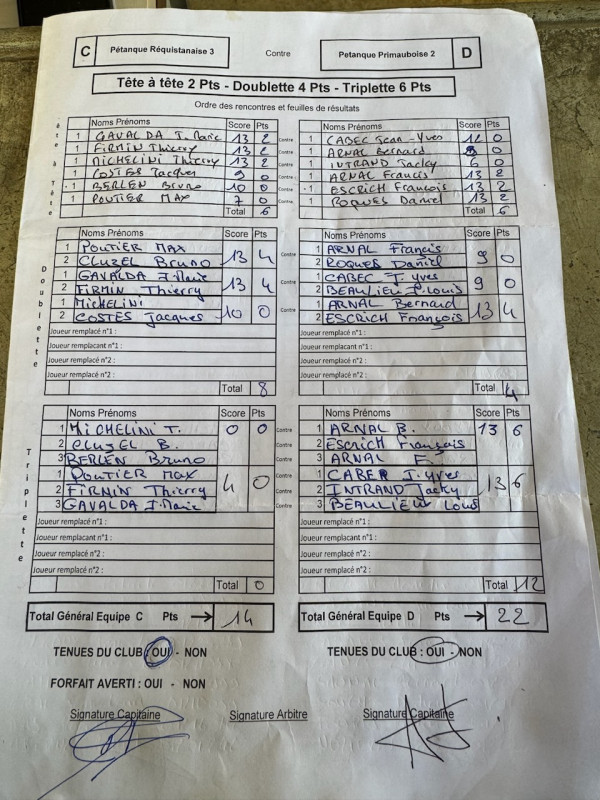 C Pétanque Réquistanaise 3 Contre Petanque Primauboise 2 D
Tête à tête 2 Pts - Doublette 4 Pts - Triplette 6 Pts
Ordre des rencontres et feuilles de résultats
Tête à Tête
Noms Prénoms Score Pts Noms Prénoms Score Pts
1 GAVALDA J.Marie 13 2 Contre 1 CABEC Jean-Yves 12 0
1 FIRMIN Thierry 13 2 Contre 1 ARNAL Bernard 0
1 MICHELINI Thierry 13 2 Contre 1 INTRAND Jacky 6 0
1 COSTES Jacques 9 0 Contre 1 ARNAL Francis 13 2
1 BERLEN Bruno 10 0 Contre 1 ESCRICH François 13 2
1 POUTIER MAX 7 0 Contre 1 ROQUES Daniel 13 2
Total 6 Total 6
Doublette
Noms Prénoms Score Pts Noms Prénoms Score Pts
1 POUTIER MAX 1 ARNAL Francis
2 CLUZEL Bruno 13 4 Contre 2 ROQUES Daniel 9 0
1 GAVALDA J.Marie 1 CABEC J.yves
2 FIRMIN Thierry 13 4 Contre 2 BEAULIEU J.Louis 9 0
1 MICHELINI 1 ARNAL Bernard
2 COSTES Jacques 10 0 Contre 2 ESCRICH François 13 4
Joueur remplacé n°1 : Joueur remplacé n°1 :
Joueur remplacant n°1 : Joueur remplacant n°1 :
Joueur remplacé n°2 : Joueur remplacé n°2 :
Joueur remplacé n°2 : Joueur remplacé n°2 :
Total 8 Total 4
Triplette
Noms Prénoms Score Pts Noms Prénoms Score Pts
1 MICHELINI T. 0 0 Contre 1 ARNAL B. 13 6
2 CLUZEL B. Contre 2 Escrich Français
3 BERLEN Bruno Contre 3 ARNAL F.
1 POUTIER MAX Contre 1 CABER J.yves
2 FIRMIN Thierry 4 0 Contre 2 INTRAND Jacky 13 6
3 GAVALDA J.Marie Contre 3 BEAULIEU Louis
Joueur remplacé n°1 : Joueur remplacé n°1 :
Joueur remplacant n°1 : Joueur remplacant n°1 :
Joueur remplacé n°2 : Joueur remplacé n°2 :
Joueur remplacé n°2 : Joueur remplacé n°2 :
Total 0 Total 12
Total Général Equipe C Pts 14 Total Général Equipe D Pts 22
TENUES DU CLUB : OUI - NON TENUES DU CLUB : OUI - NON
FORFAIT AVERTI : OUI - NON
Signature Capitaine Signature Arbitre Signature Capitaine